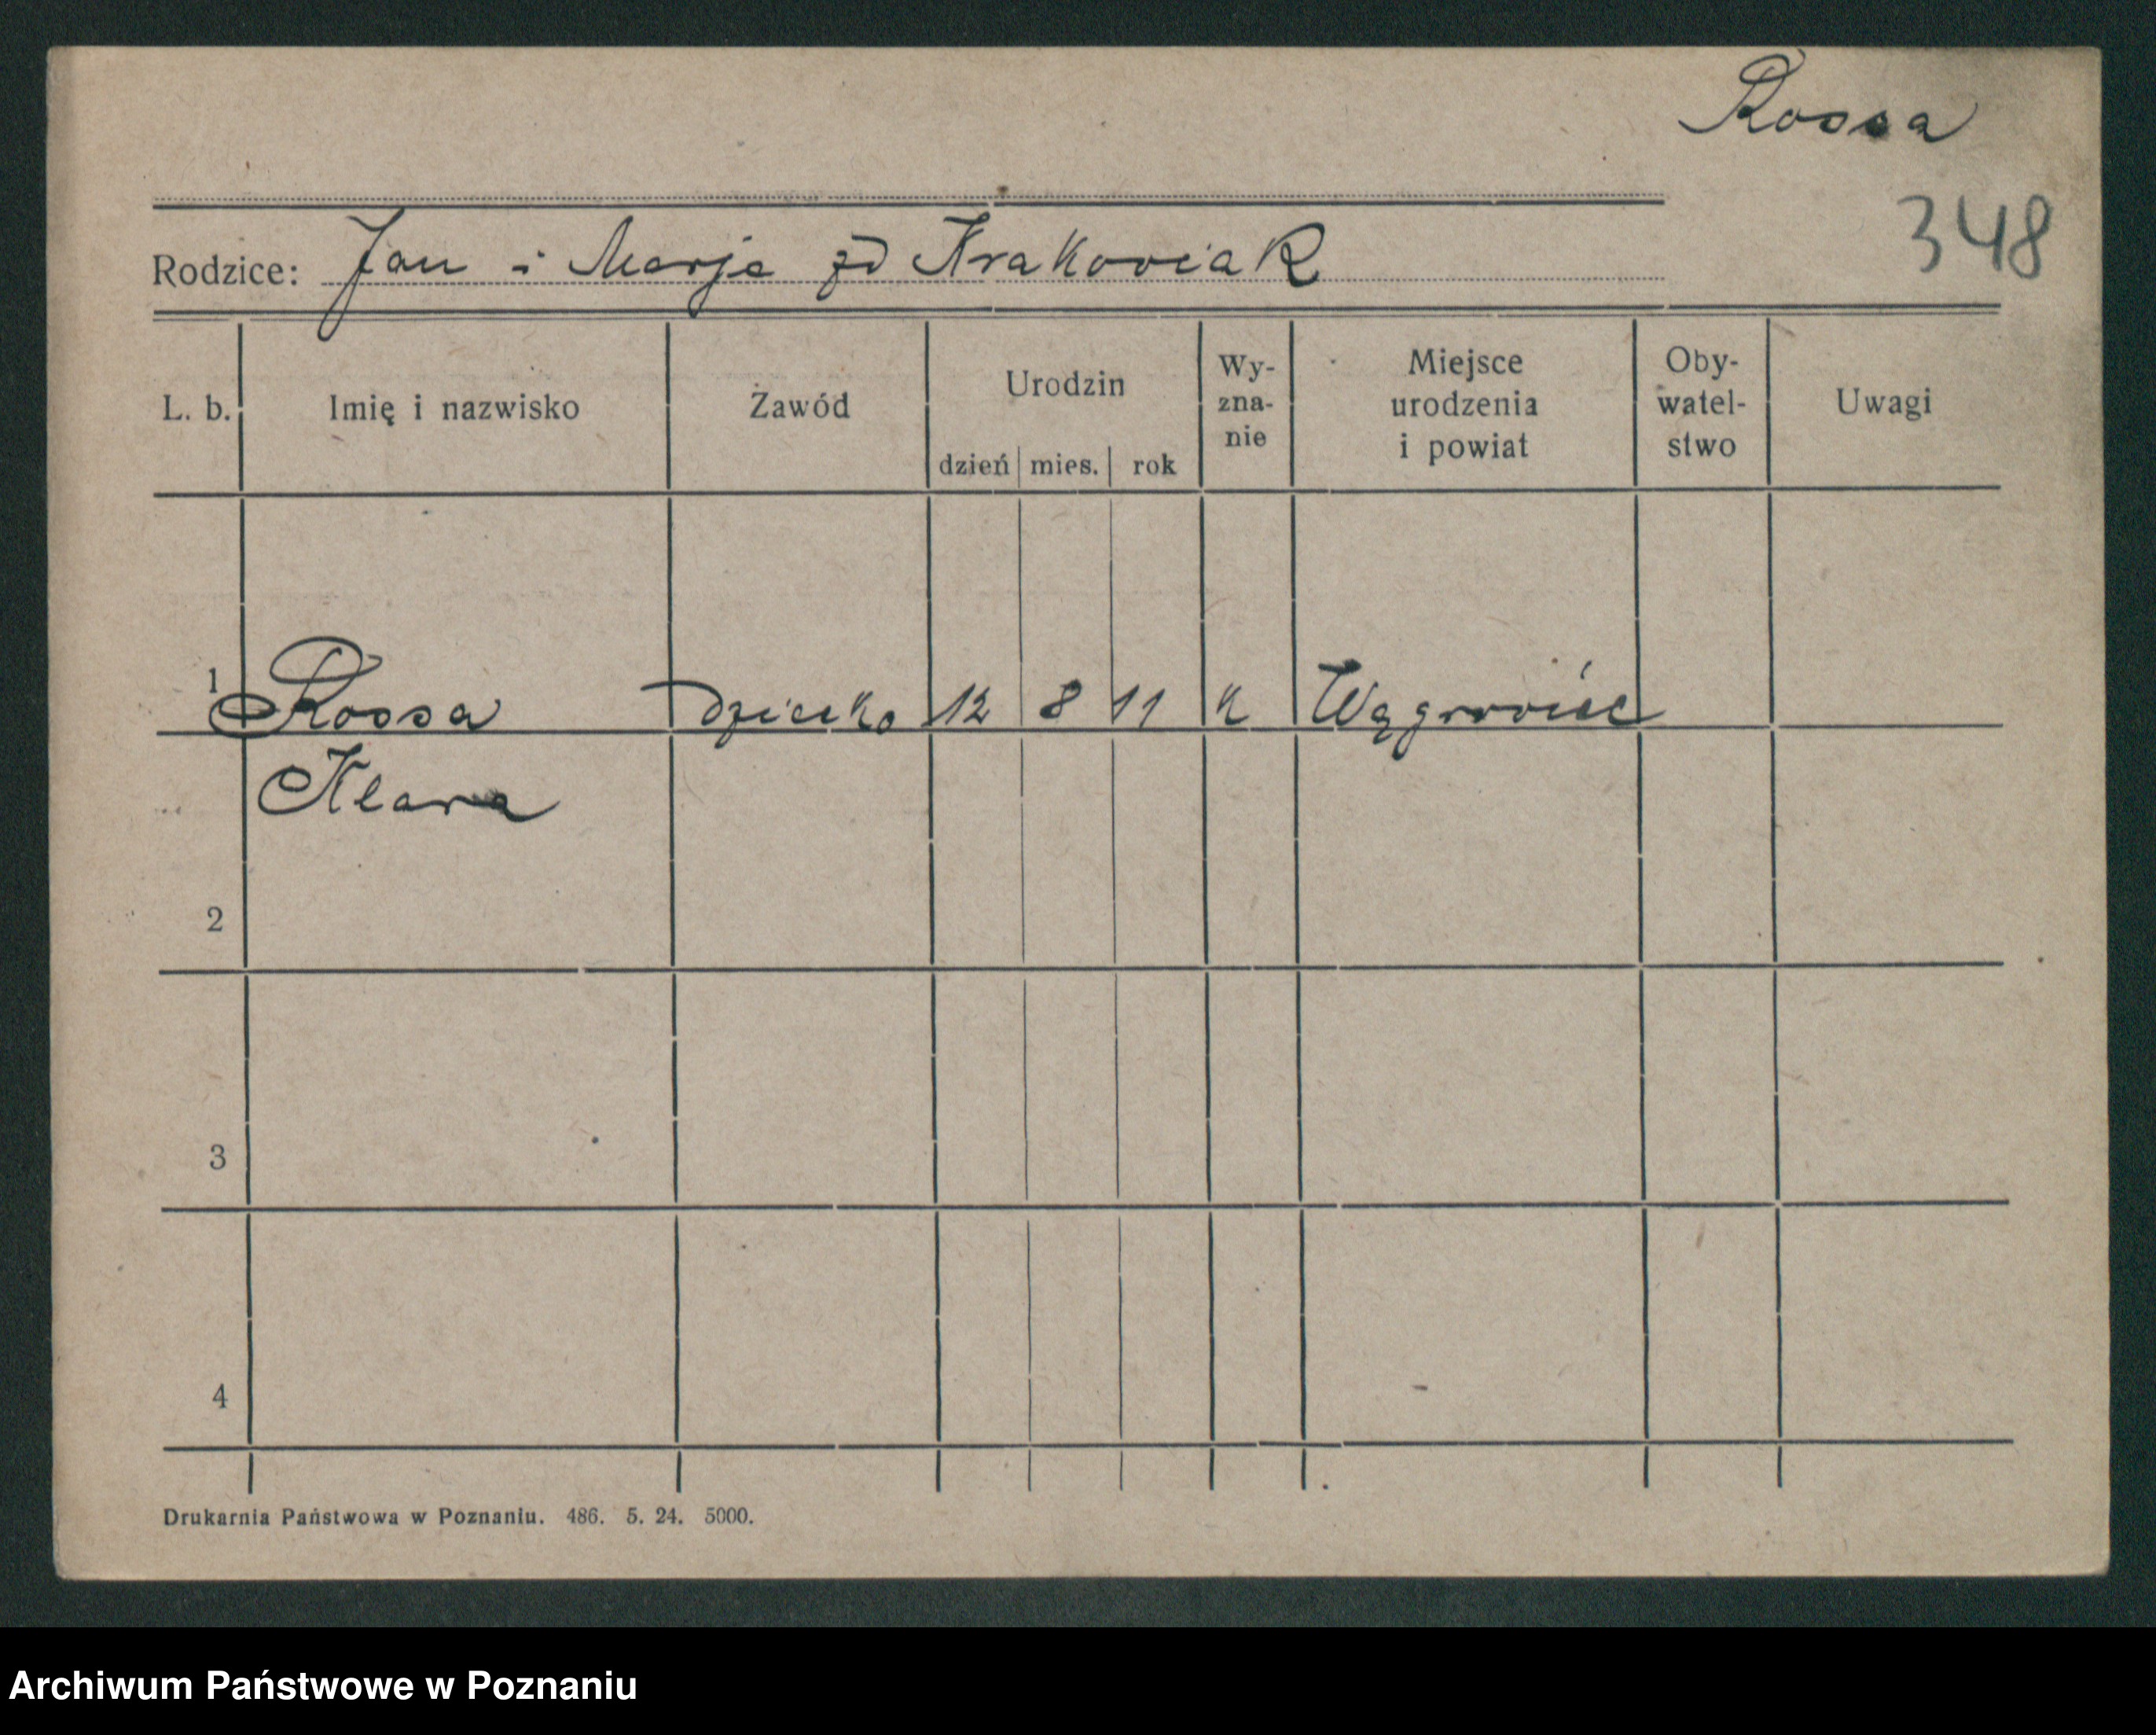 Rossa
348
Rodzice: Jan i Marja zd Krakowiak
L. b. Imię i nazwisko Zawód Urodzin Wy- Miejsce Oby- Uwagi
zna- urodzenia watel-
nie i powiat stwo
dzień mies. rok
1 Rossa Dziecko 12 8 11 K Wągrowiec
Klara
2
3
4
Drukarnia Państwowa w Poznaniu. 486. 5. 24. 5000.
Archiwum Państwowe w Poznaniu